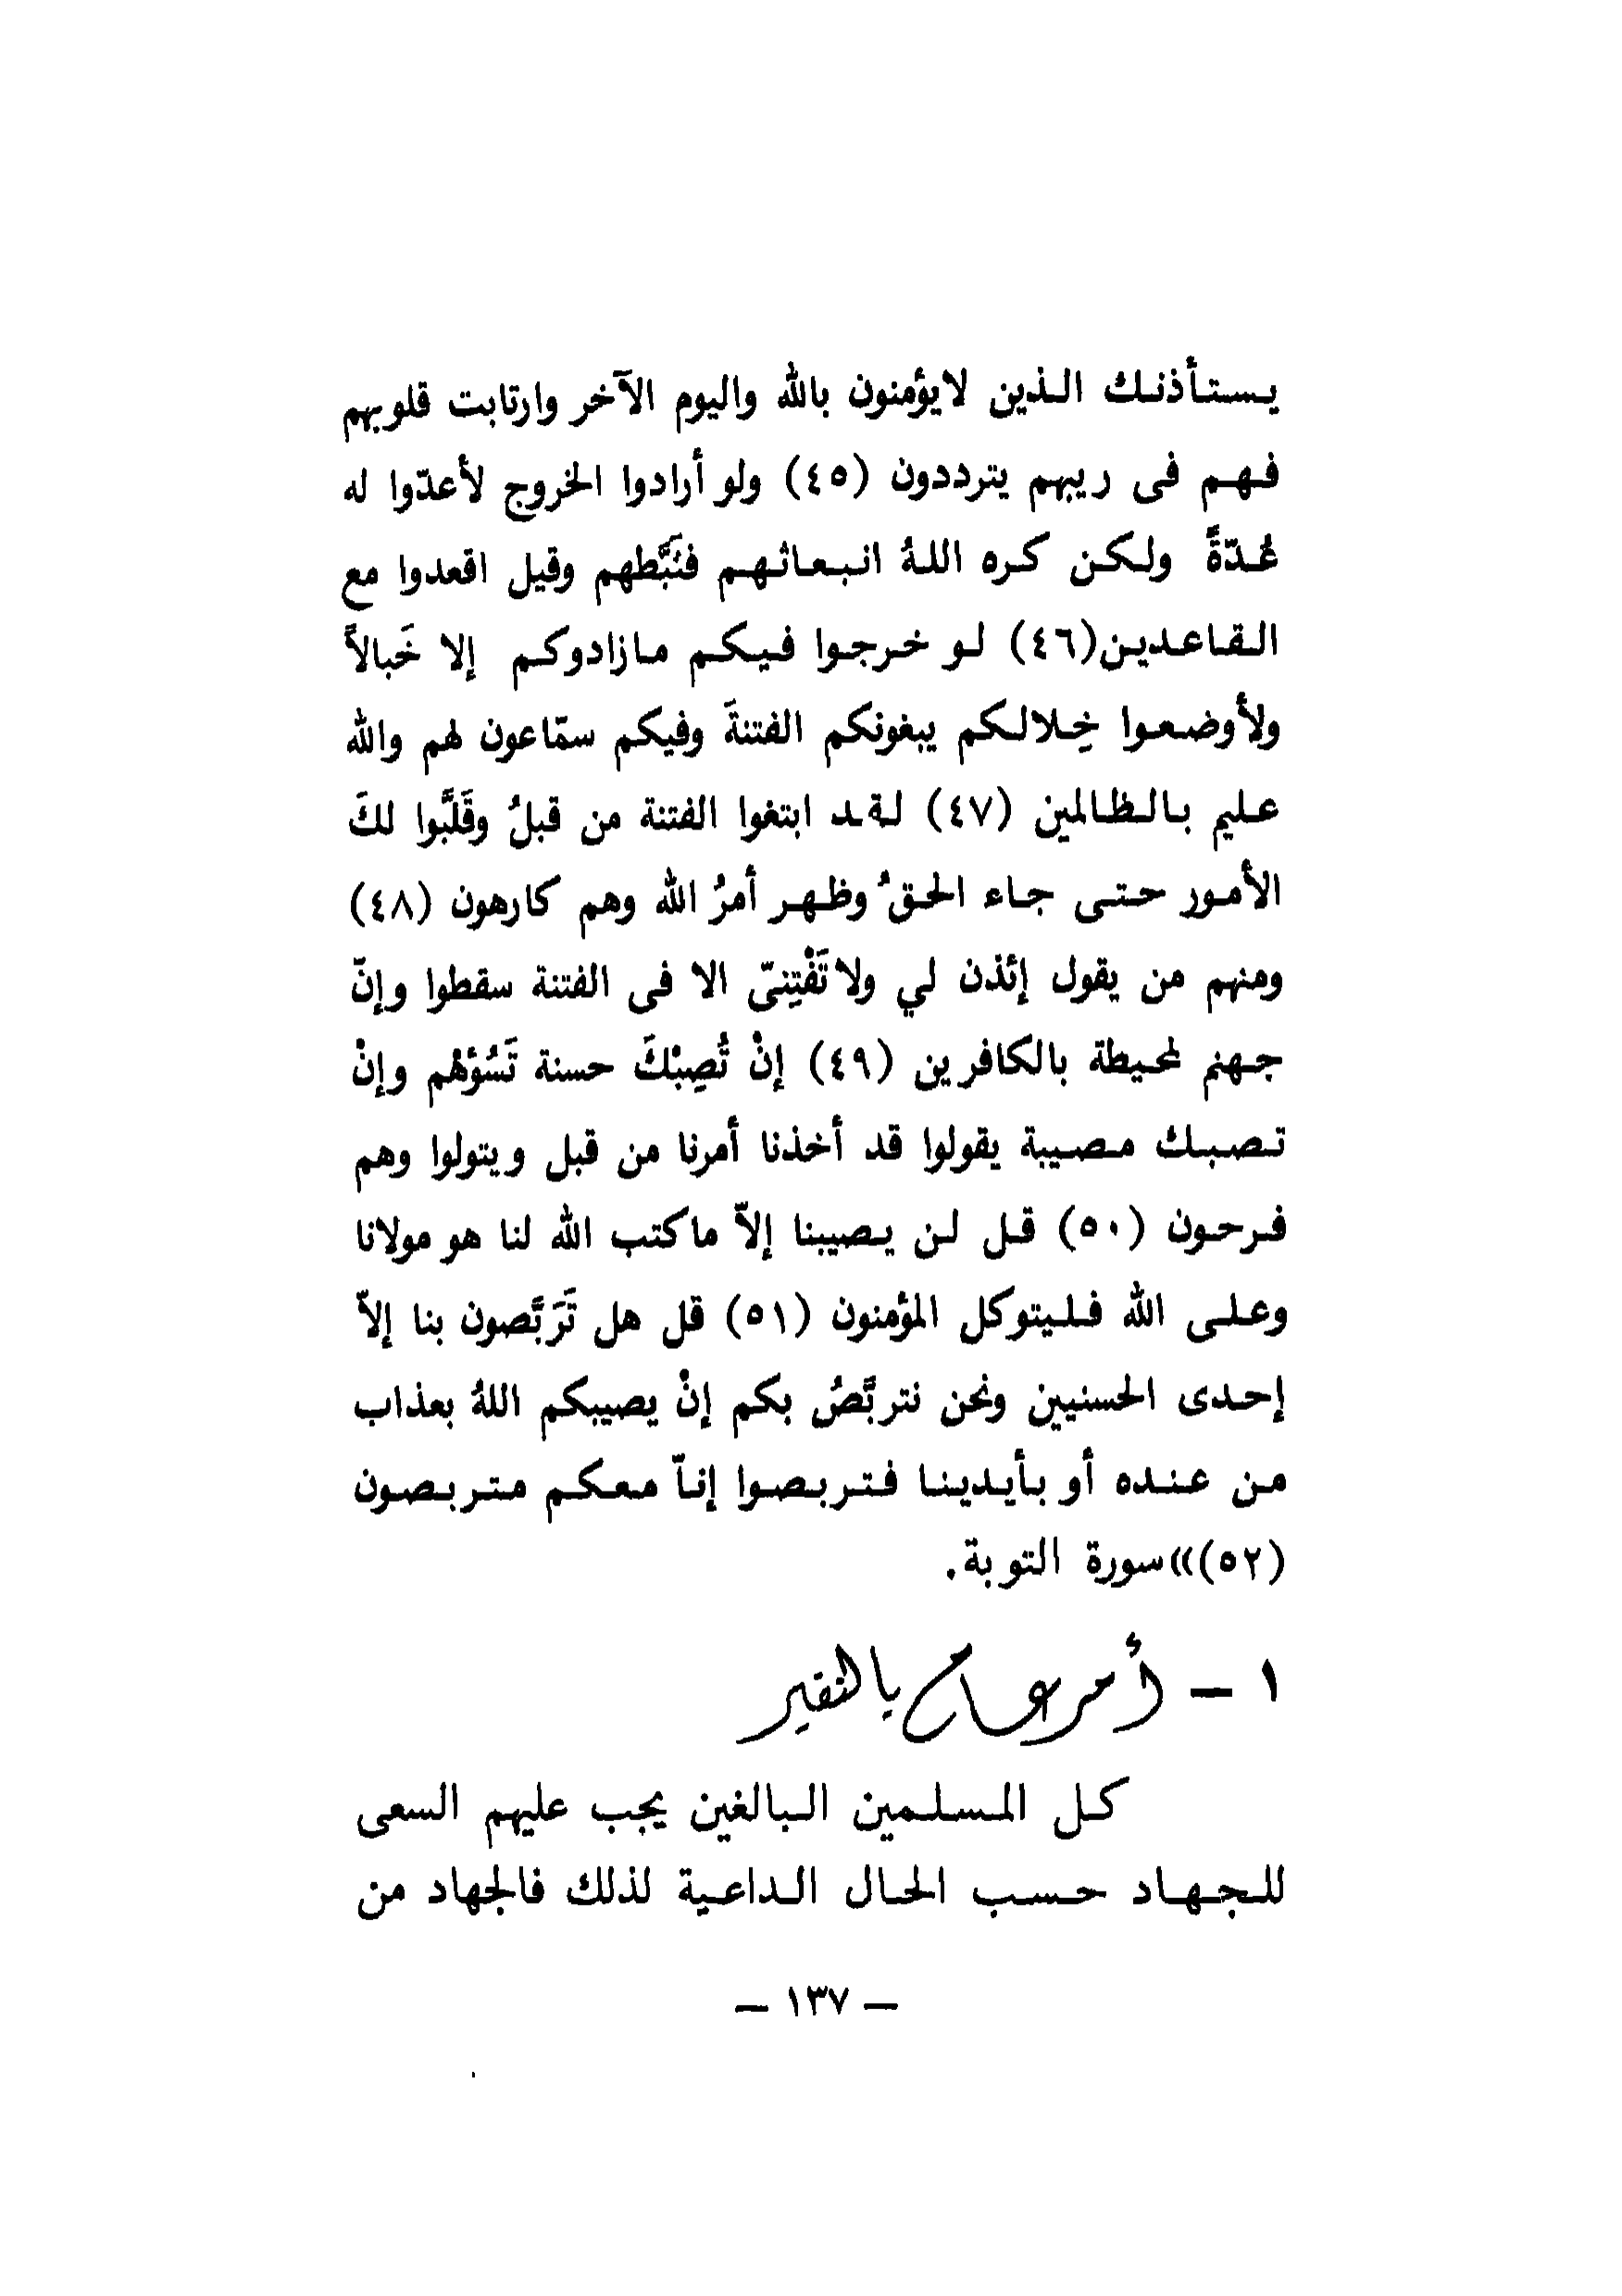 يستأذنك الذين لايؤمنون بالله واليوم الآخر وارتابت قلوبهم
فهم فى ريبهم يترددون (٤٥) ولو أرادوا الخروج لأعدّوا له
عُدّةً ولكن كره اللهُ انبعاثهم فثَبَّطهم وقيل اقعدوا مع
القاعدين(٤٦) لو خرجوا فيكم مازادوكم إلا خَبالاً
ولأوضعوا خِلالكم يبغونكم الفتنةَ وفيكم سمّاعون لهم والله
عليم بالظالمين (٤٧) لقد ابتغوا الفتنة من قبلُ وقَلَّبوا لكَ
الأمور حتى جاء الحقُ وظهر أمرُ الله وهم كارهون (٤٨)
ومنهم من يقول إئذن لي ولا تَفْتِنىّ الا فى الفتنة سقطوا وإنّ
جهنم لمحيطة بالكافرين (٤٩) إنْ تُصِبْكَ حسنة تَسُؤهُم وإنْ
تصبك مصيبة يقولوا قد أخذنا أمرنا من قبل ويتولوا وهم
فرحون (٥٠) قل لن يصيبنا إلاّ ماكتب الله لنا هو مولانا
وعلى الله فليتوكل المؤمنون (٥١) قل هل تَرَبَّصون بنا إلاّ
إحدى الحسنيين ونحن نتربَّصُ بكم إنْ يصيبكم اللهُ بعذاب
من عنده أو بأيدينا فتربصوا إناّ معكم متربصون
(٥٢)»سورة التوبة.
١ – أمر عام بالنفير
كل المسلمين البالغين يجب عليهم السعى
للجهاد حسب الحال الداعية لذلك فالجهاد من
– ١٣٧ –